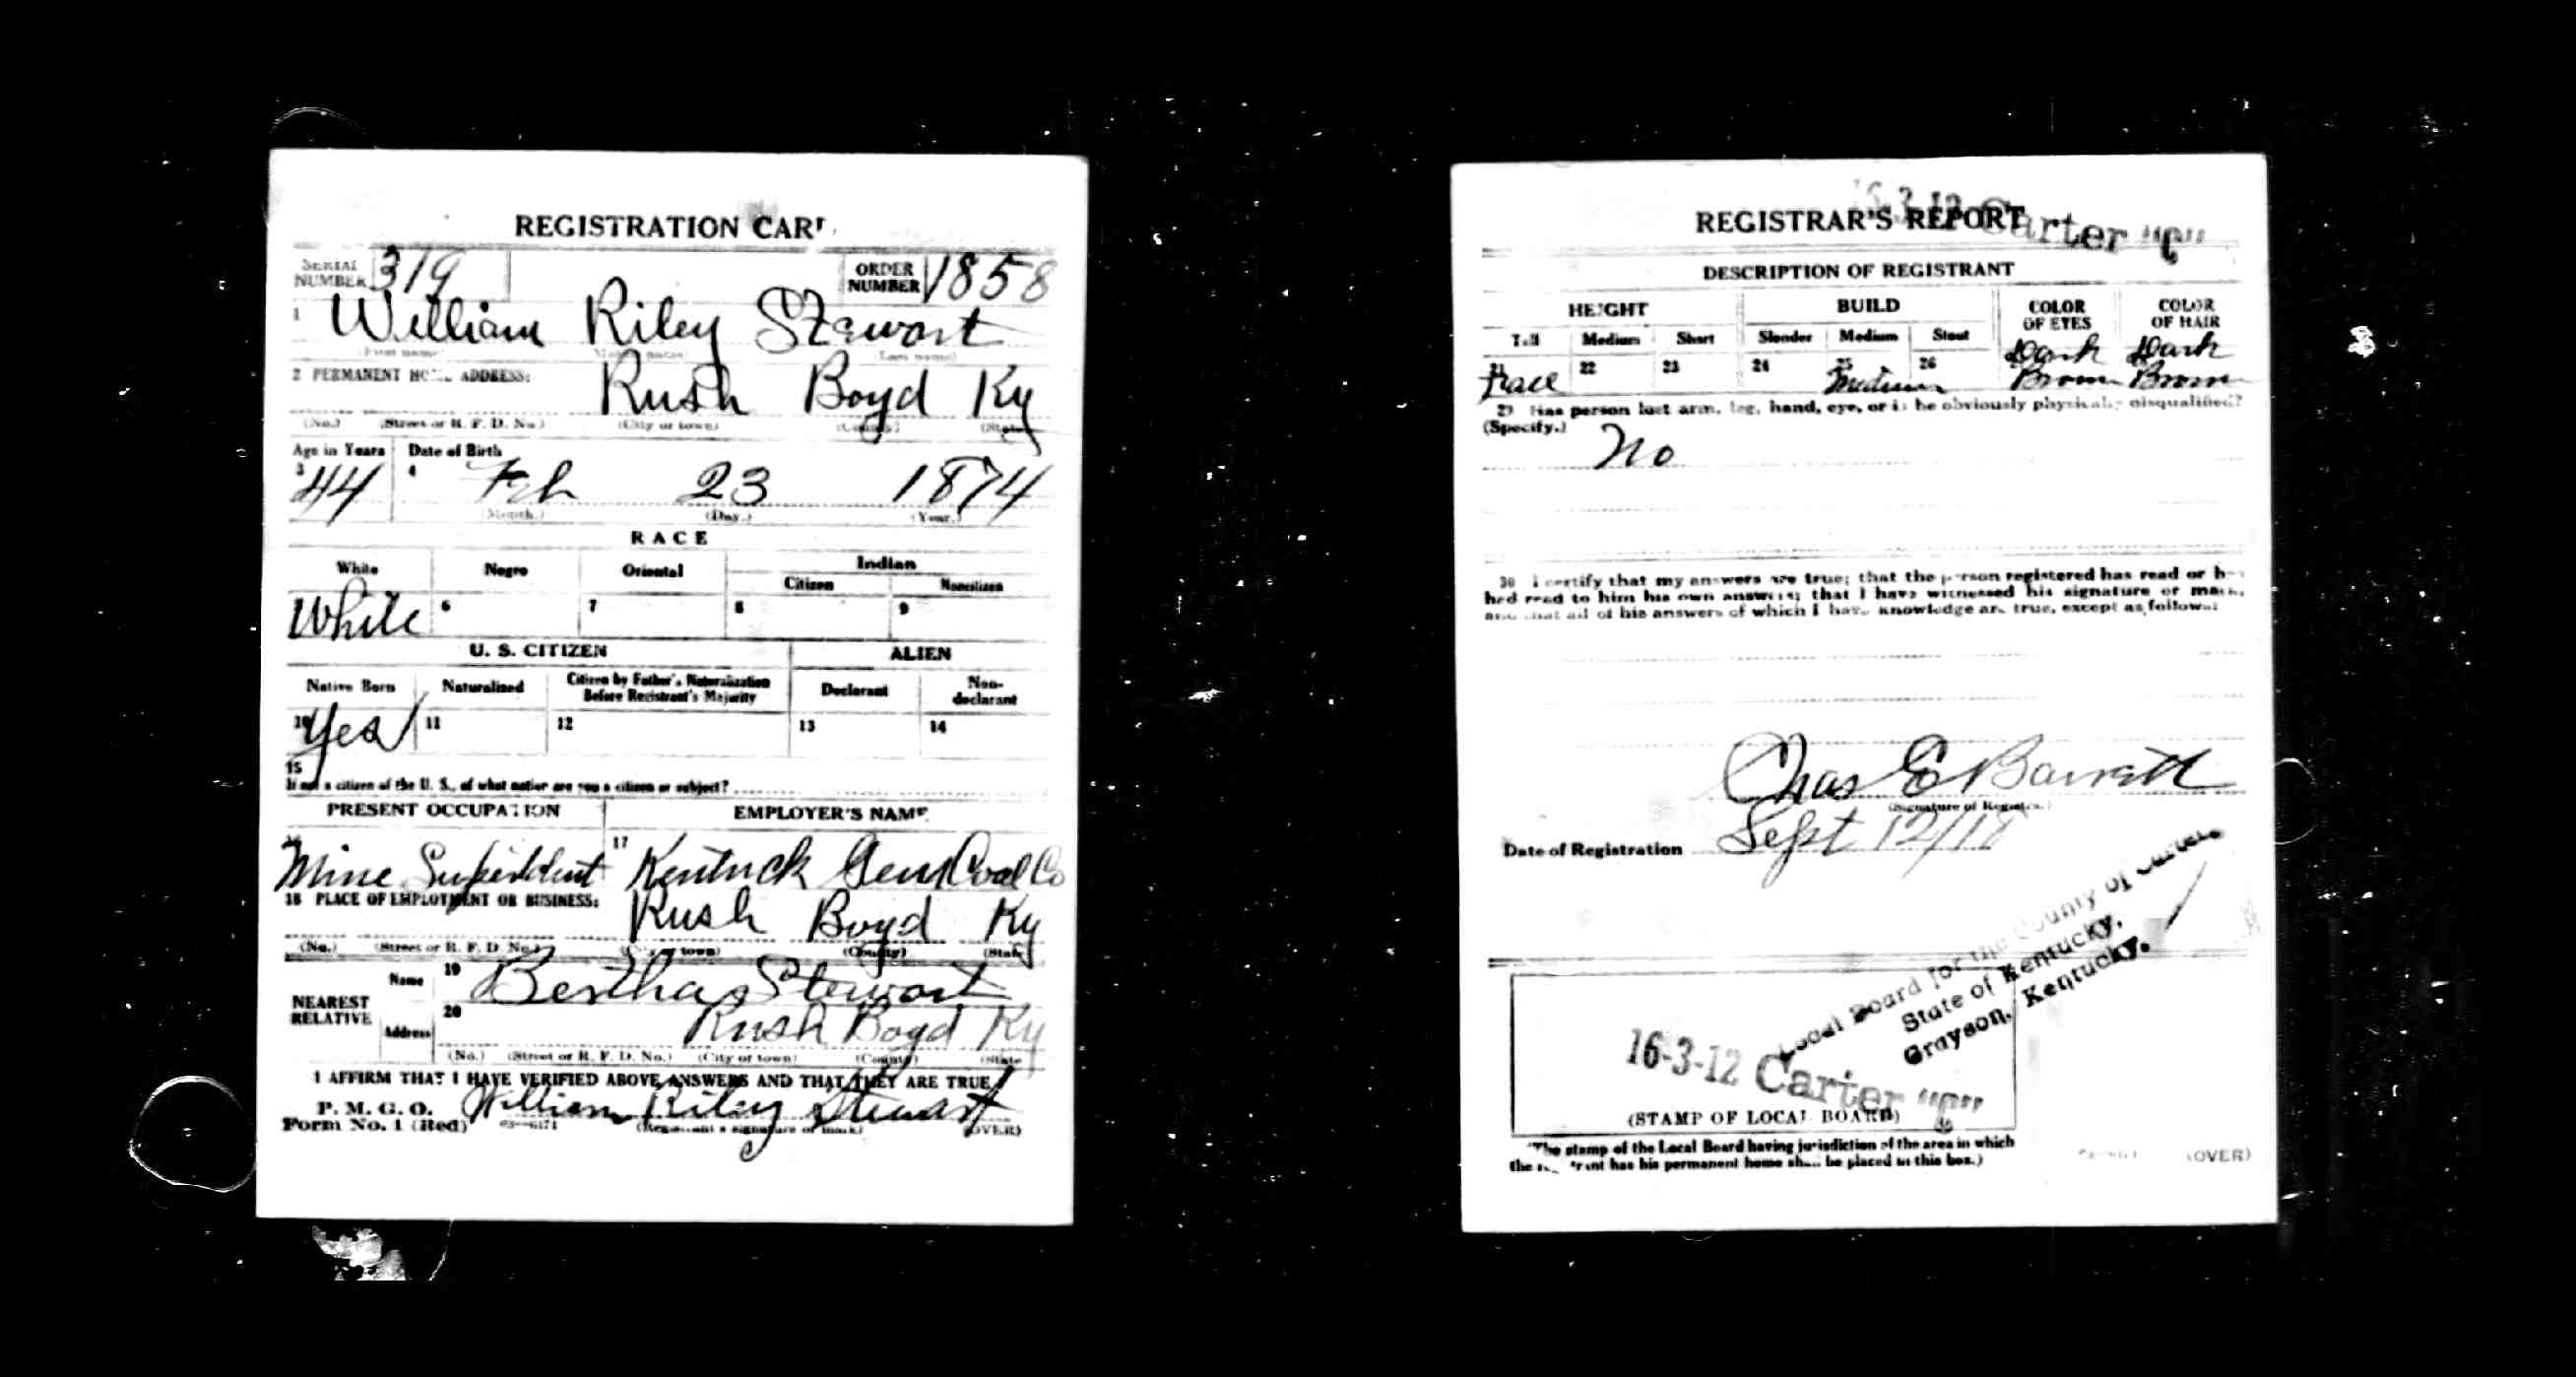 REGISTRATION CAR
SERIAL NUMBER 319
ORDER NUMBER 1858
1 William Riley Stewart
(First name) (Middle name) (Last name)
2 PERMANENT HOME ADDRESS: Rush Boyd Ky
(No.) (Street or R. F. D. No.) (City or town) (County) (State)
Age in Years Date of Birth
3 44 4 Feb 23 1874
(Month.) (Day.) (Year.)
RACE
White Negro Oriental Indian
Citizen Noncitizen
White 6 7 8 9
U. S. CITIZEN ALIEN
Native Born Naturalized Citizen by Father's Naturalization Before Registrant's Majority Declarant Non-declarant
10 Yes 11 12 13 14
15
If not a citizen of the U. S., of what nation are you a citizen or subject?
PRESENT OCCUPATION EMPLOYER'S NAME
Mine 17 Kentuck Gem Coal Co
18 PLACE OF EMPLOYMENT OR BUSINESS: Rush Boyd Ky
(No.) (Street or R. F. D. No.) (City or town) (County) (State)
NEAREST RELATIVE
Name 19 Bertha Stewart
Address 20 Rush Boyd Ky
(No.) (Street or R. F. D. No.) (City or town) (County) (State
I AFFIRM THAT I HAVE VERIFIED ABOVE ANSWERS AND THAT THEY ARE TRUE
P. M. G. O.
Form No. 1 (Red) William Riley Stewart
(Registrant's signature or mark) (OVER)
REGISTRAR'S REPORT
16-3-12 Carter "C"
DESCRIPTION OF REGISTRANT
HEIGHT BUILD COLOR OF EYES COLOR OF HAIR
Tall Medium Short Slender Medium Stout
21 22 23 24 25 26
Tall Medium Dark Brown Dark Brown
29 Has person lost arm, leg, hand, eye, or is he obviously physically disqualified?
(Specify.) No
30 I certify that my answers are true; that the person registered has read or has
had read to him his own answers; that I have witnessed his signature or mark,
and that all of his answers of which I have knowledge are true, except as follows:
Chas E Barrett
(Signature of Registrar.)
Date of Registration Sept 12/18
Local Board for the County of Carter,
State of Kentucky,
Grayson, Kentucky.
16-3-12 Carter "C"
(STAMP OF LOCAL BOARD)
(The stamp of the Local Board having jurisdiction of the area in which
the registrant has his permanent home shall be placed in this box.)
(OVER)